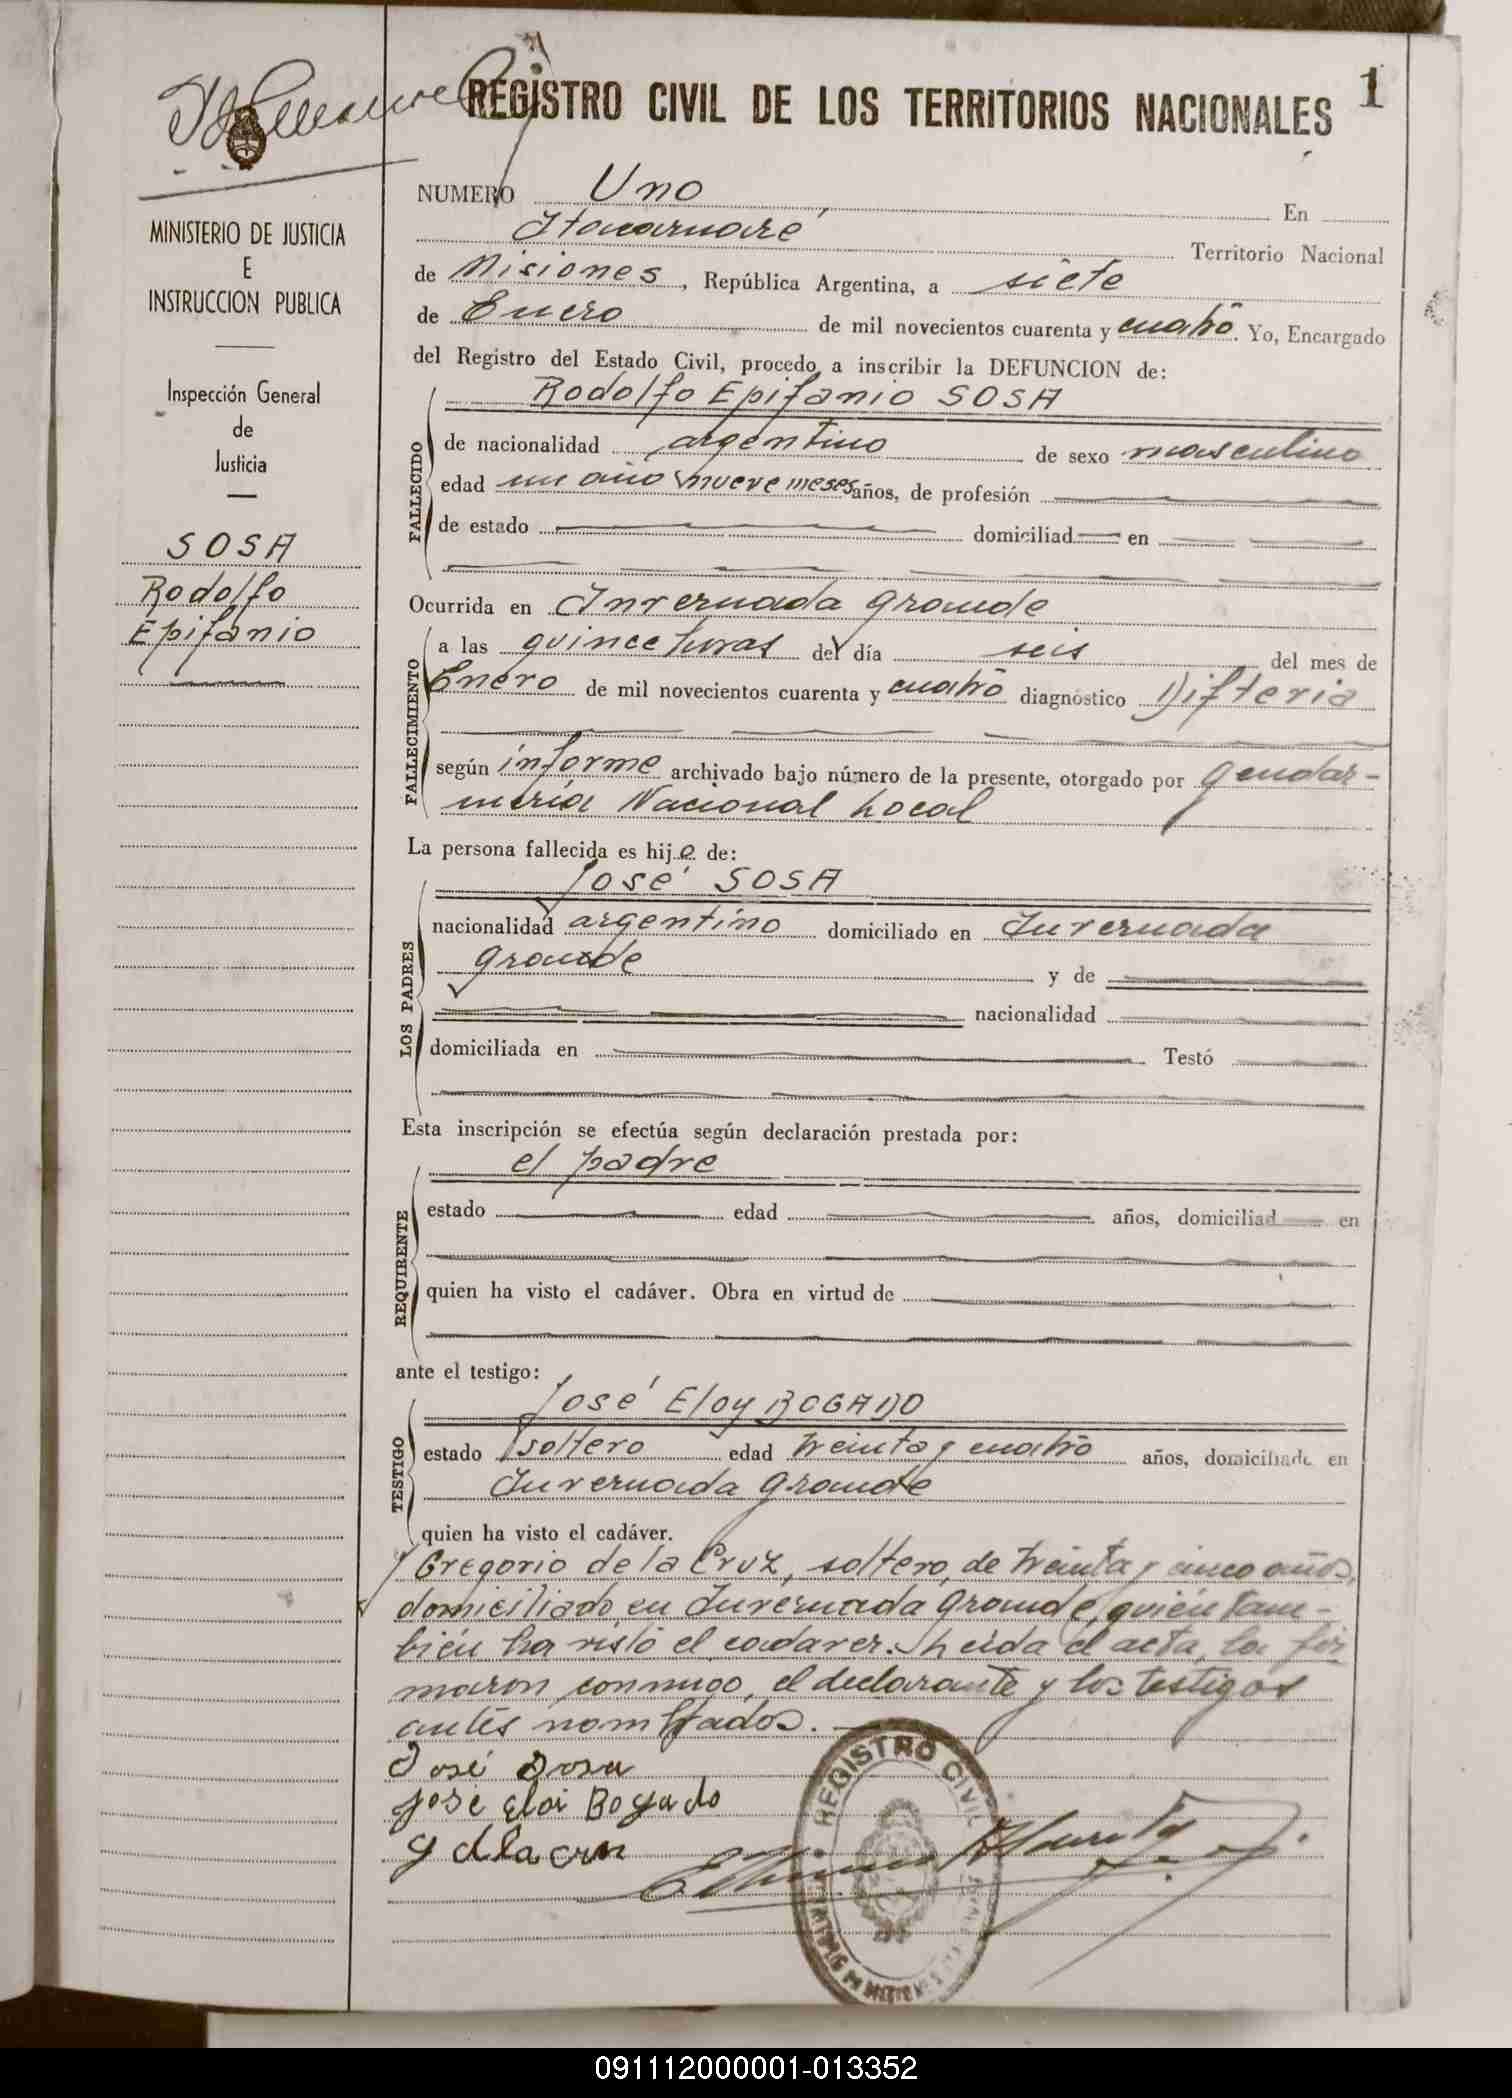 REGISTRO CIVIL DE LOS TERRITORIOS NACIONALES
1
MINISTERIO DE JUSTICIA
E
INSTRUCCION PUBLICA
Inspección General
de
Justicia
SOSA
Rodolfo
Epifanio
NUMERO Uno En
Itacaruaré Territorio Nacional
de Misiones, República Argentina, a siete
de Enero de mil novecientos cuarenta y cuatro. Yo, Encargado
del Registro del Estado Civil, procedo a inscribir la DEFUNCION de:
Rodolfo Epifanio SOSA
FALLECIDO
de nacionalidad argentino de sexo masculino
edad un año y nueve meses años, de profesión
de estado domiciliad en
Ocurrida en Invernada Grande
FALLECIMIENTO
a las quince horas del día seis del mes de
Enero de mil novecientos cuarenta y cuatro diagnóstico Difteria
según informe archivado bajo número de la presente, otorgado por Gendar-
mería Nacional Local
La persona fallecida es hijo de:
José SOSA
LOS PADRES
nacionalidad argentino domiciliado en Invernada
Grande y de
nacionalidad
domiciliada en Testó
Esta inscripción se efectúa según declaración prestada por:
el padre
REQUIRENTE
estado edad años, domiciliad en
quien ha visto el cadáver. Obra en virtud de
ante el testigo:
José Eloy BOGADO
TESTIGO
estado soltero edad treinta y cuatro años, domiciliado en
Invernada Grande
quien ha visto el cadáver.
y Gregorio de la Cruz, soltero, de treinta y cinco años,
domiciliado en Invernada Grande, quien tam-
bién ha visto el cadaver. Leida el acta, la fir
maron conmigo, el declarante y los testigos
antes nombrados.
José Sosa
José Eloi Bogado
G dlacru
REGISTRO CIVIL
091112000001-013352